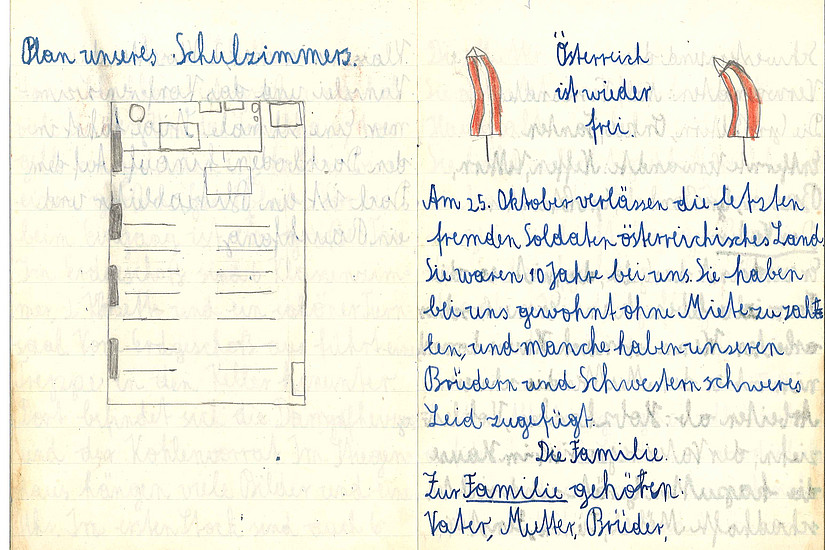 Plan unseres Schulzimmers.
Österreich
ist wieder
frei.
Am 25. Oktober verlässen die letzten
fremden Soldaten österreichisches Land.
Sie waren 10 Jahre bei uns. Sie haben
bei uns gewohnt ohne Miete zu zah-
len, und manche haben unseren
Brüdern und Schwestern schweres
Leid zugefügt.
Die Familie.
Zur Familie gehören.
Vater, Mutter, Brüder,